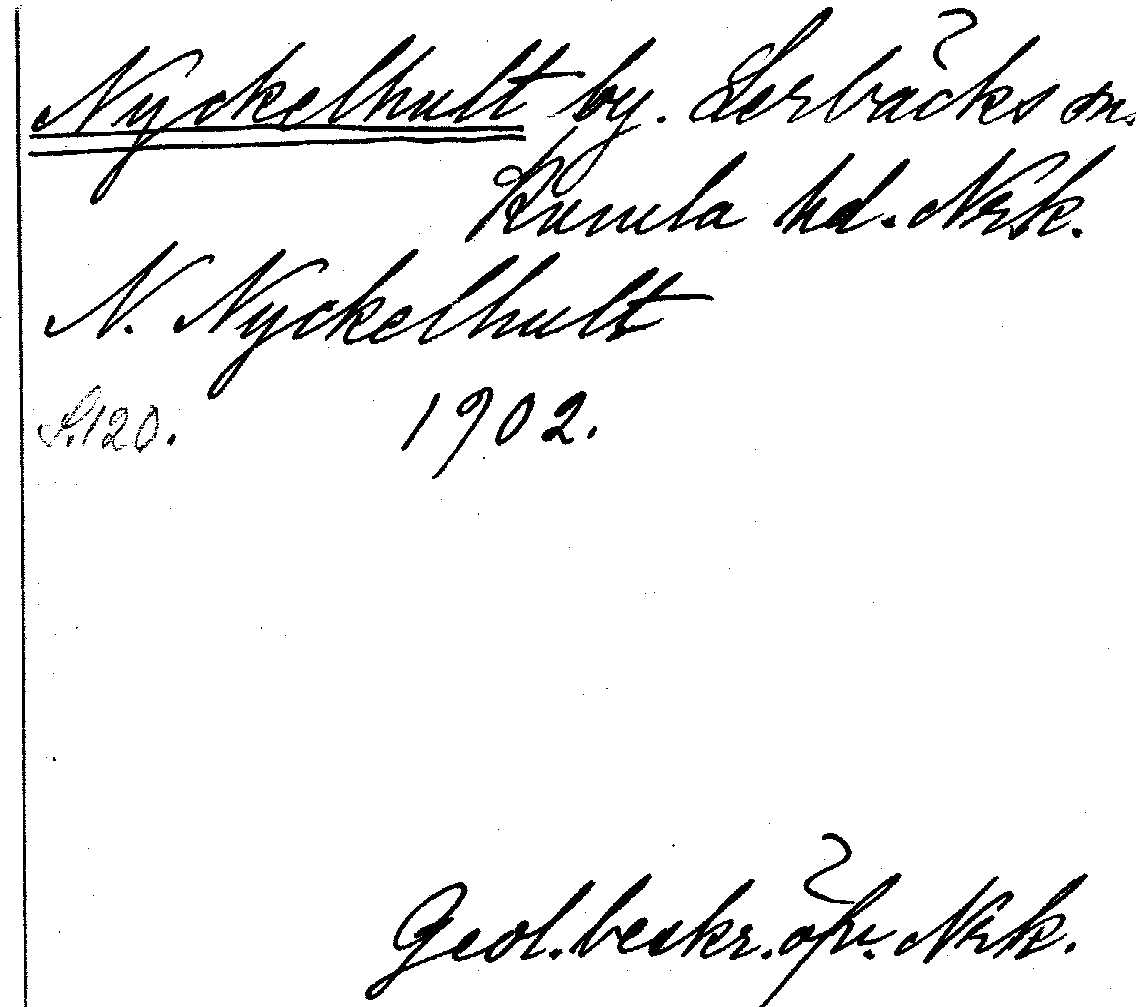 Nyckelhult by. Lerbäcks sn.
Kumla hd. Nrk.
N. Nyckelhult
S.120. 1902.
Geol. beskr. öfv. Nrk.